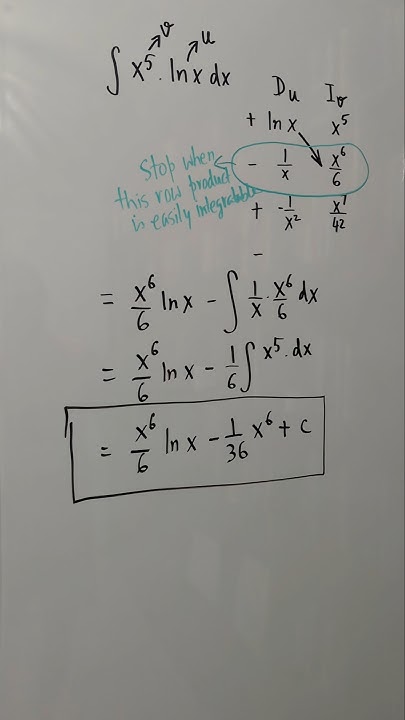 v u
∫ x⁵ . ln x dx
D_u I_v
+ ln x x⁵
- 1/x x⁶/6
Stop when
this row product
is easily integrable
+ -1/x² x⁷/42
-
= x⁶/6 ln x - ∫ 1/x . x⁶/6 dx
= x⁶/6 ln x - 1/6 ∫ x⁵ . dx
= x⁶/6 ln x - 1/36 x⁶ + c